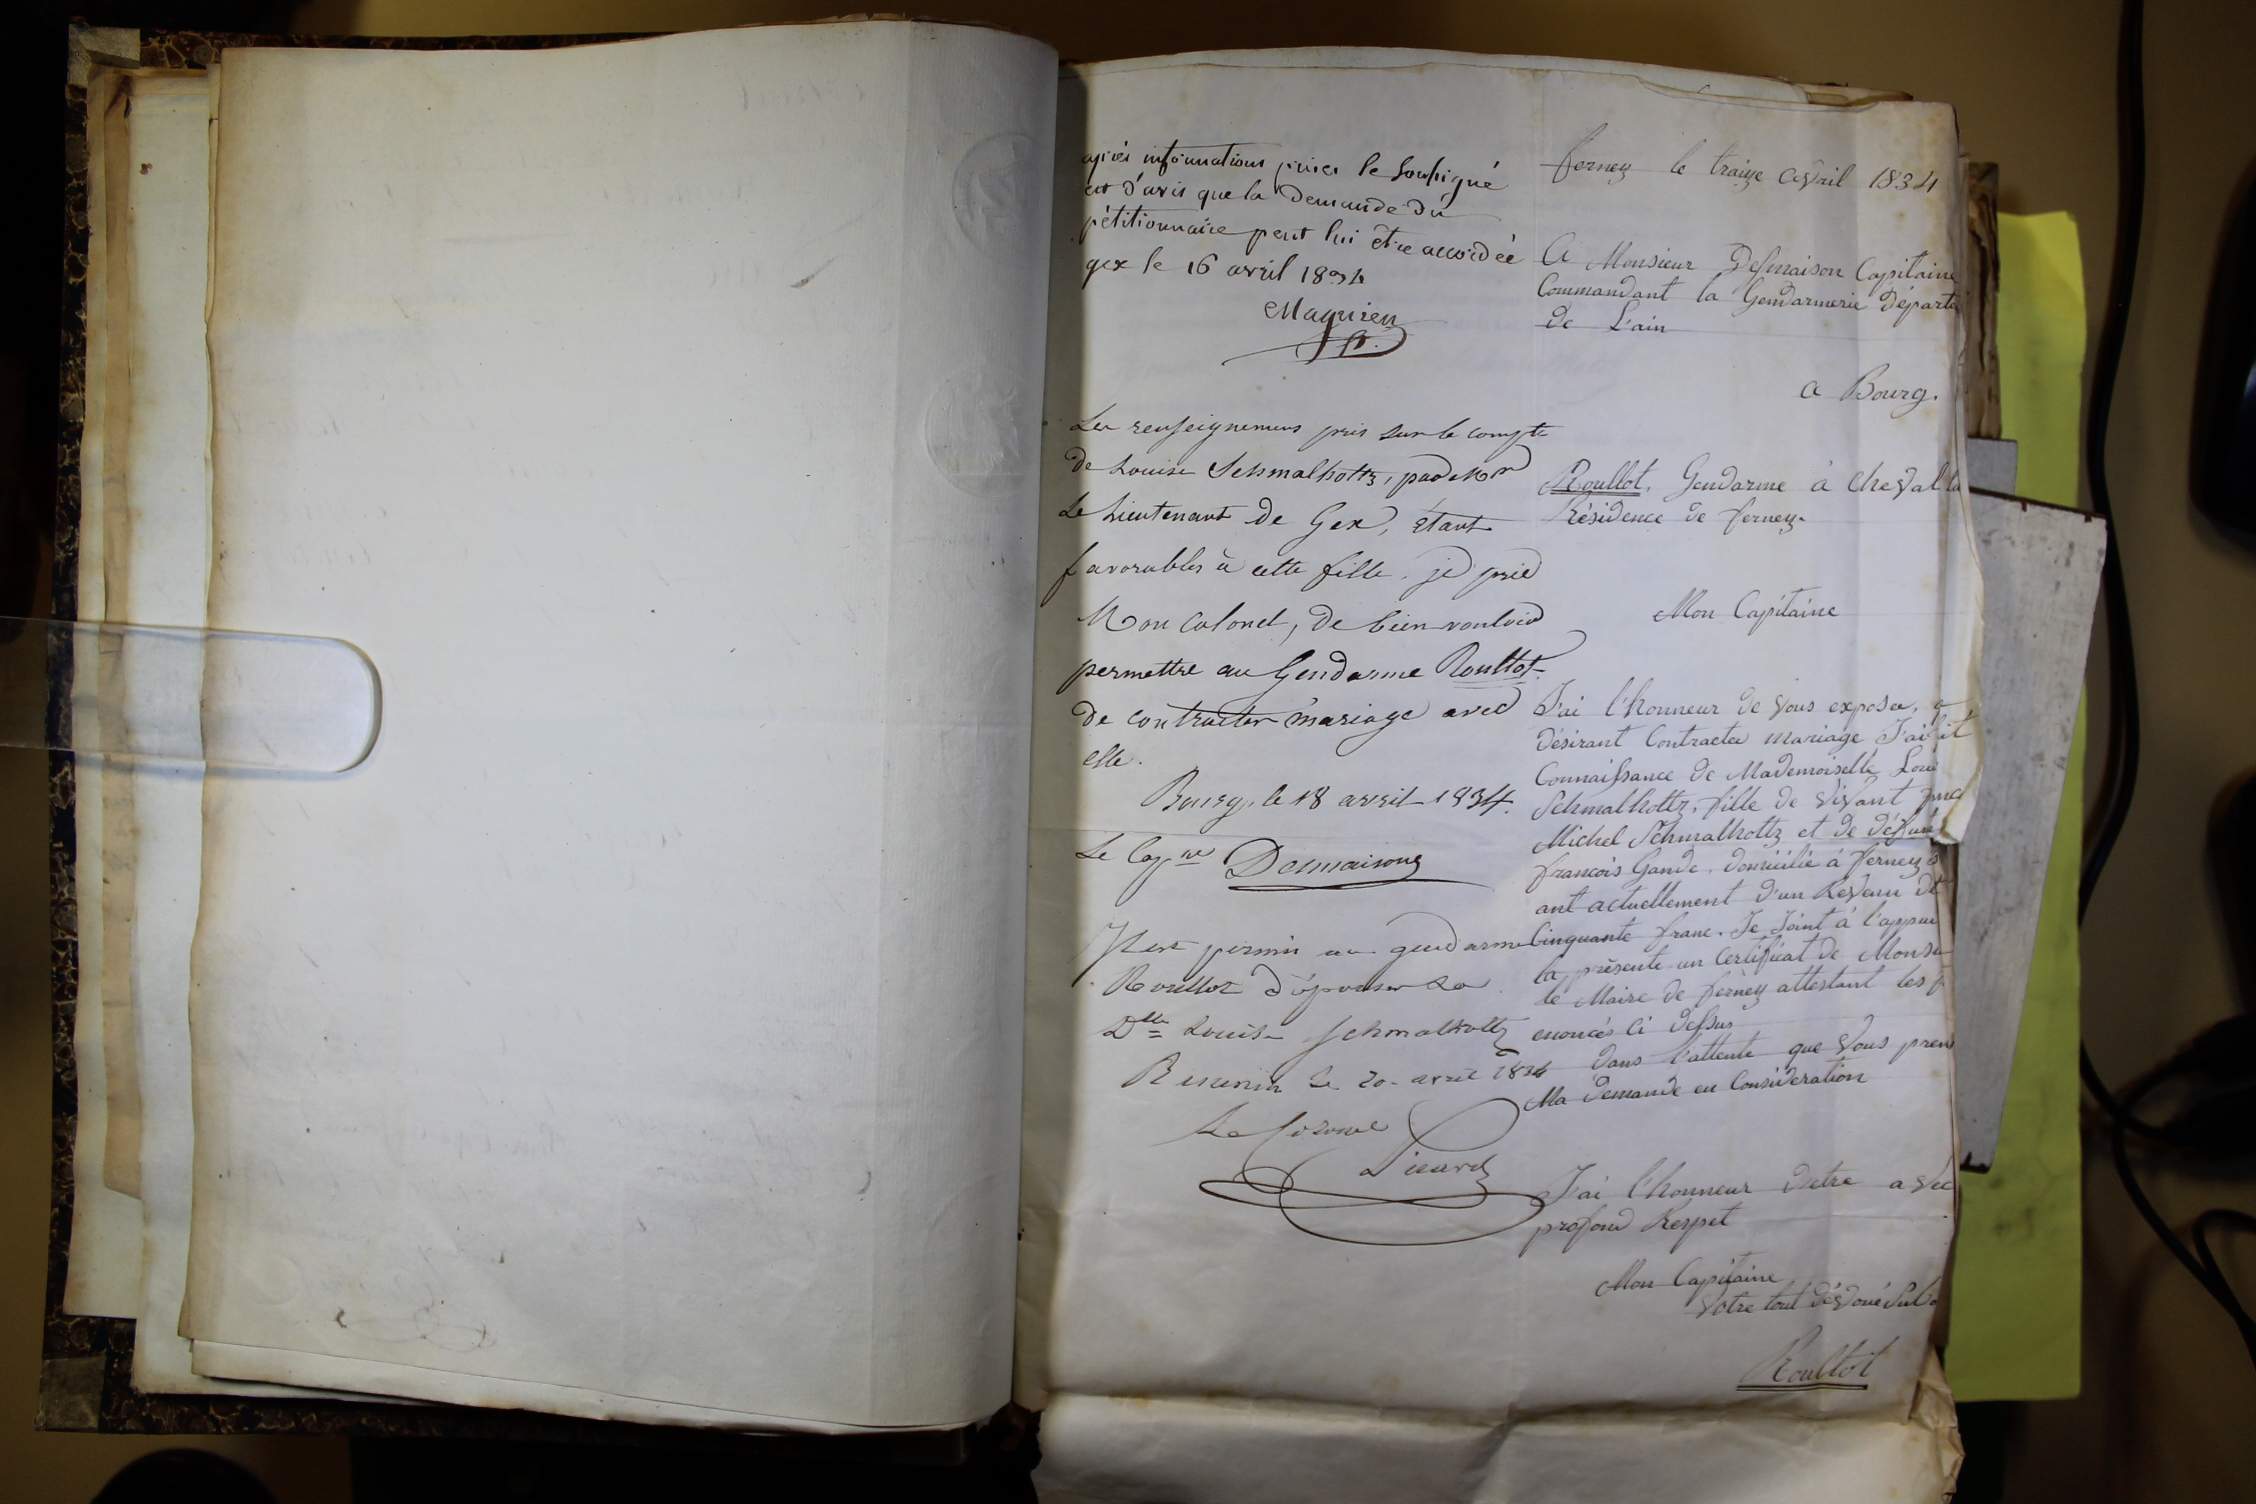 après informations prises le soussigné
est d'avis que la demande du
pétitionnaire peut lui être accordée
gex le 16 avril 1834
Magnien
Les renseignemens pris sur le compte
de Louise Schmalholtz, par Mr
Le Lieutenant de Gex, étant
favorables à cette fille. je prie
Mon Colonel, de bien vouloir
permettre au Gendarme Roullot
de contracter mariage avec
elle.
Bourg, le 18 avril 1834.
Le Capne Desmaisons
Il est permis au gendarme
Roullot d'épouser la
Dlle Louise Schmalholtz
le 20 avril 1834
Le Colonel
Picard
ferney le traize Avril 1834
A Monsieur Desmaison Capitaine
Commandant la Gendarmerie Départe
de L'ain
a Bourg.
Roullot, Gendarme à cheval la
Résidence de ferney.
Mon Capitaine
J'ai l'honneur de Vous exposer, q
désirant Contracter mariage J'ai fit
Connaissance de Mademoiselle Loui
Schmalholtz, fille de vivant
Michel Schmalholtz et de défunt
françois Gande, domicilié à ferney
ant actuellement d'un Revenu de
Cinquante franc. Je Joint à l'appui
la présente un Certificat de Monsie
le Maire de ferney attestant les f
enoncés Ci dessus
dans l'attente que Vous pren
Ma demande en Considération
J'ai l'honneur detre avec
profond Respet
Mon Capitaine
Votre tout dévoué Sub
Roullot